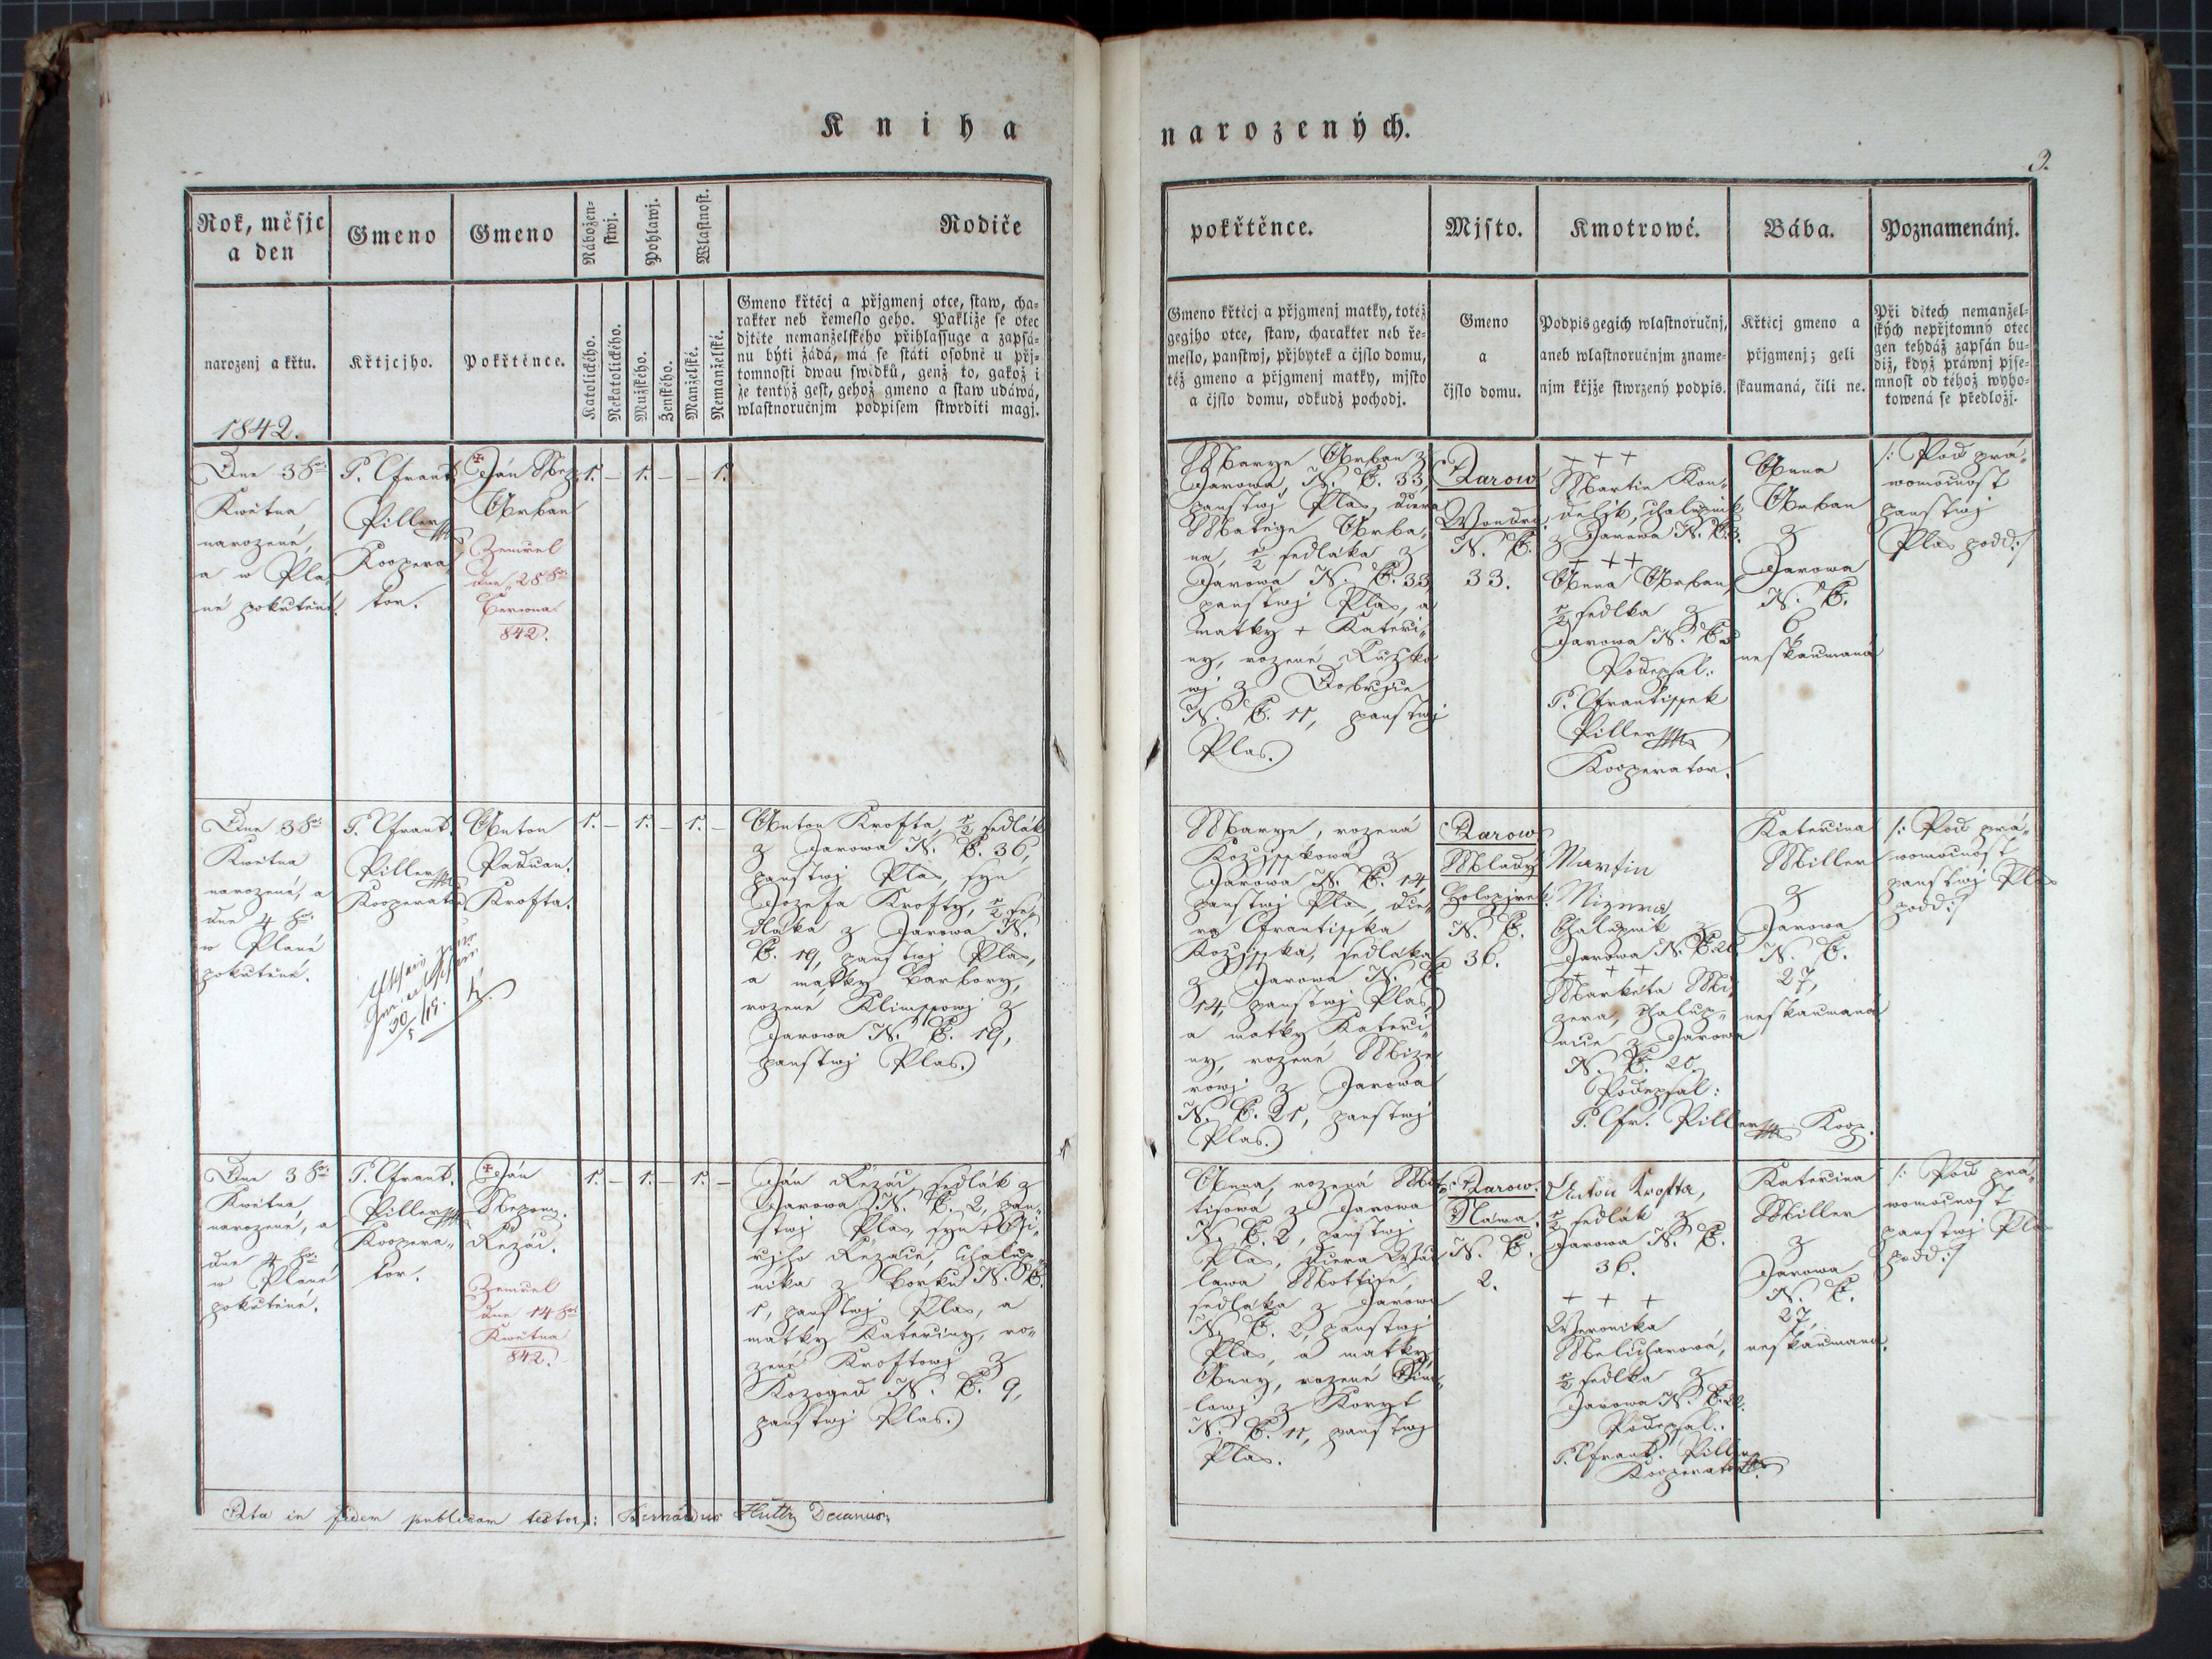 Kniha
narozených.
3.
Rok, měsjc
a den
narozenj a křtu.
1842.
Gmeno
Křtjcjho.
Gmeno
Pokřtěnce.
Nábožen-
stwj.
Katolického.
Nekatolického.
Pohlawj.
Mužského.
Ženského.
Wlastnost.
Manželské.
Nemanželské.
Rodiče
Gmeno křtěcj a přjgmenj otce, staw, cha-
rakter neb řemeslo geho. Pakliže se otec
djtěte nemanželského přihlassuge a zapsá-
nu býti žádá, má se státi osobně u přj-
tomnosti dwau swědků, genž to, gakož i
že tentýž gest, gehož gmeno a staw udáwá,
wlastnoručnjm podpisem stwrditi magj.
pokřtěnce.
Gmeno křtěcj a přjgmenj matky, totéž
gegjho otce, staw, charakter neb ře-
meslo, panstwj, přjbytek a čjslo domu,
též gmeno a přjgmenj matky, mjsto
a čjslo domu, odkudž pochodj.
Mjsto.
Gmeno
a
čjslo domu.
Kmotrowé.
Podpis gegich wlastnoručnj,
aneb wlastnoručnjm zname-
njm křjže stwrzený podpis.
Bába.
Křtěcj gmeno a
přjgmenj; geli
skaumaná, čili ne.
Poznamenánj.
Při dětech nemanžel-
ských nepřjtomný otec
gen tehdáž zapsán bu-
diž, když práwnj pjse-
mnost od téhož wyho-
towená se předložj.
Dne 3ho
Kwětna
narozené,
a w Pla-
né pokrtěné.
P. Frant.
Piller
Koopera
tor.
Ján Nep.
Urban
Zemrel
dne 28ho
Června
842.
1. – 1. – – 1.
Marye Urban z
Jarowa, N. C. 33,
panstwj Plas, dcera
Matege Urba-
na, 1/2 sedláka z
Jarowa N. C. 33,
panstwj Plas, a
matky + Kateri-
ny, rozené Ruzko
wj z Dobrjce
N. C. 11, panstwj
Plas.
Žarow
Wondra.
N. C.
33.
+ + +
Martin Kon-
delik, chalupnik
z Jarowa N. C.
+ + +
Anna Urban,
1/2 sedlka z
Jarowa N. C.
Podepsal:
P. Frantissek
Piller
Kooperator.
Anna
Urban
z
Jarowa
N. C.
6
neskaumaná
/: Pod prá-
womocnost
panstwj
Plas podd:/
Dne 3ho
Kwětna
narozené, a
dne 4 ho
w Plané
pokrtěné.
P. Frant.
Piller
Kooperator
30/5
Anton
Paduan.
Krofta.
1. – 1. – 1. –
Anton Krofta, 1/2 sedlák
z Jarowa N. C. 36,
panstwj Plas, syn
Jozefa Krofty, 1/2 se-
dláka z Jarowa N.
C. 19, panstwj Plas,
a matky Barbory,
rozené Klimssowj z
Jarowa N. C. 19,
panstwj Plas.
Marye, rozená
Kozjsskowá z
Jarowa N. C. 14,
panstwj Plas, dce-
ra Frantisska
Kozjsska, sedláka
z Jarowa N. C.
14, panstwj Plas,
a matky Kateri-
ny, rozené Mize-
rowj z Jarowa
N. C. 21, panstwj
Plas.
Žarow
Mladý
Holopjrek.
N. C.
36.
Martin
Mizera,
Chalupnik z
Jarowa N. C. 20.
+ + +
Markéta Mi-
zera, chalup-
nice z Jarowa
N. C. 20.
Podepsal:
P. Fr. Piller Koop.
Katerina
Miller
z
Jarowa
N. C.
27,
neskaumaná
/: Pod prá-
womocnost
panstwj Plas
podd:/
Dne 3ho
Kwětna,
narozené, a
dne 4 ho
w Plané
pokrtěné.
P. Frant.
Piller
Koopera-
tor.
Ján
Nepom.
Rezáč.
Zemrel
dne 14ho
Kwětna
842.
1. – 1. – 1. –
Ján Rezáč, sedlák z
Jarowa N. C. 2, pan-
stwj Plas, syn + Gi-
rjho Rezáče, chalup-
nika z Borku N. C.
1, panstwj Plas, a
matky Kateriny, ro-
zené Kroftowj z
Kozoged N. C. 9,
panstwj Plas.
Anna, rozená Mot-
tisowá z Jarowa
N. C. 2, panstwj
Plas, dcera Wác-
lawa Mottise,
sedláka z Jarowa
N. C. 2, panstwj
Plas, a matky
Anny, rozené
lowj z Koryt
N. C. 11, panstwj
Plas.
Žarow.
Sláma.
N. C.
2.
Anton Krofta,
1/2 sedlák z
Jarowa N. C.
36.
+ + +
Weronika
Melicharowá,
1/2 sedlka z
Jarowa N. C. 22.
Podepsal:
P. Frant. Piller
Kooperator.
Katerina
Miller
z
Jarowa
N. C.
27,
neskaumaná.
/: Pod prá-
womocnost
panstwj Plas
podd:/
Ita in fidem publicam testor: Bernardus Decanus.